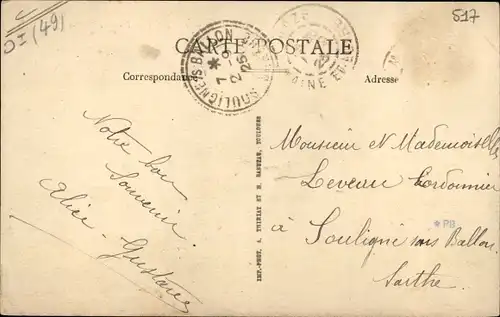 DI (49)
517
CARTE POSTALE
Correspondance
Adresse
SOULIGNE-S-BALLON
7 * 9
2 25
Notre bon
Souvenir
Alice Gustave
IMP.-PHOT. A. THIRIAT ET H. BASUYAU, TOULOUSE
Monsieur et Mademoiselle
Leveau Cordonnier
à Souligné sous Ballon
Sarthe
*PB